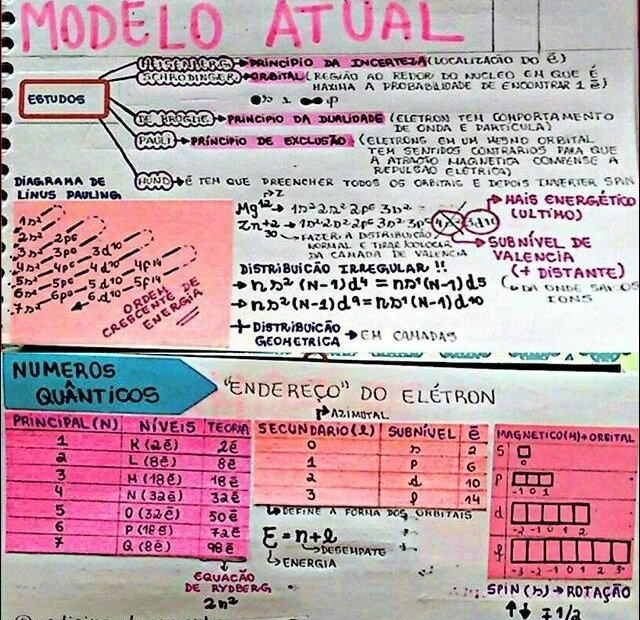 MODELO ATUAL
ESTUDOS
HEISENBERG → PRINCÍPIO DA INCERTEZA (LOCALIZAÇÃO DO ē)
SCHRODINGER → ORBITAL (REGIÃO AO REDOR DO NUCLEO EM QUE É
MAXIMA A PROBABILIDADE DE ENCONTRAR 1 ē)
DE BROGLIE → PRINCIPIO DA DUALIDADE (ELETRON TEM COMPORTAMENTO
DE ONDA E PARTICULA)
PAULI → PRINCÍPIO DE EXCLUSÃO (ELETRONS EM UM MESMO ORBITAL
TEM SENTIDOS CONTRARIOS PARA QUE
A ATRAÇÃO MAGNETICA COMPENSE A
REPULSÃO ELÉTRICA)
HUND → ē TEM QUE PREENCHER TODOS OS ORBITAIS E DEPOIS INVERTER SPIN
DIAGRAMA DE
LINUS PAULING
1s²
2s² 2p⁶
3s² 3p⁶ 3d¹⁰
4s² 4p⁶ 4d¹⁰ 4f¹⁴
5s² 5p⁶ 5d¹⁰ 5f¹⁴
6s² 6p⁶ 6d¹⁰
7s²
ORDEM
CRESCENTE DE
ENERGIA
Mg¹² → 1s² 2s² 2p⁶ 3s²
Zn+2 → 1s² 2s² 2p⁶ 3s² 3p⁶ 4s² 3d¹⁰
30
FAZER A DISTRIBUIÇÃO
NORMAL E TIRAR
DA CAMADA DE VALENCIA
→ MAIS ENERGÉTICO
(ULTIMO)
→ SUBNÍVEL DE
VALENCIA
(+ DISTANTE)
(↳ DA ONDE SAI OS
IONS
DISTRIBUICÃO IRREGULAR !!
→ ns² (N-1)d⁴ = ns¹ (N-1)d5
→ ns² (N-1)d⁹ = ns¹ (N-1)d10
+ DISTRIBUICÃO
GEOMETRICA → EM CAMADAS
NUMEROS
QUÂNTICOS
"ENDEREÇO" DO ELÉTRON
PRINCIPAL (N) NÍVEIS TEORIA
1 K (2ē) 2ē
2 L (8ē) 8ē
3 M (18ē) 18ē
4 N (32ē) 32ē
5 O (32ē) 50ē
6 P (18ē) 72ē
7 Q (8ē) 98ē
EQUACÃO
DE RYDBERG
2n²
AZIMUTAL
SECUNDARIO (l) SUBNÍVEL ē
0 s 2
1 p 6
2 d 10
3 f 14
↳ DEFINE A FORMA DOS ORBITAIS
E = n+l
↳ DESEMPATE
↳ ENERGIA
MAGNETICO (M) → ORBITAL
S 0
P -1 0 1
d -2 -1 0 1 2
f -3 -2 -1 0 1 2 3
SPIN (s) → ROTAÇÃO
↑↓ ∓ 1/2